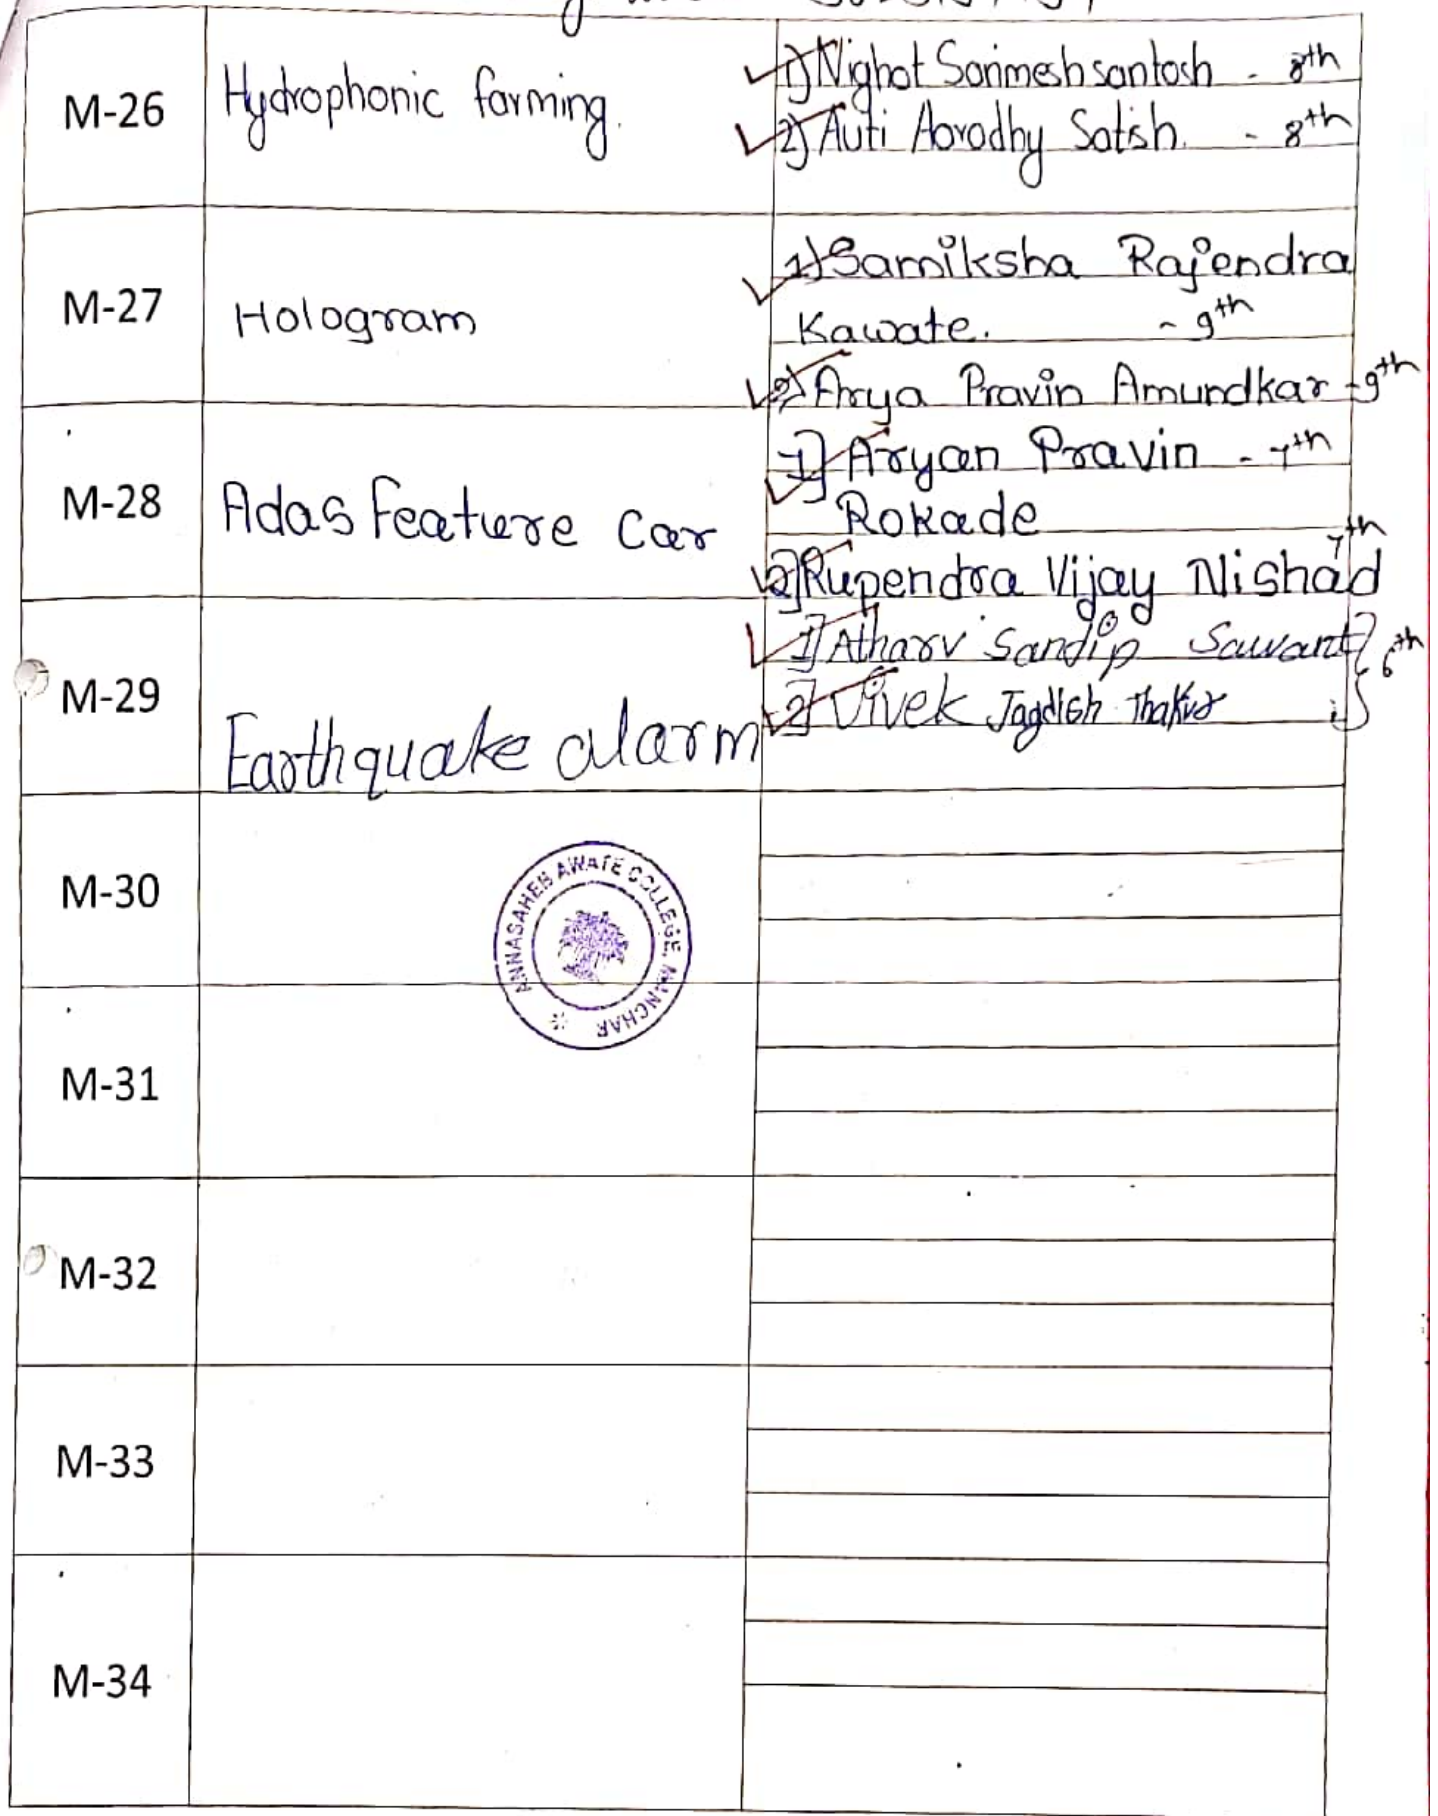 M-26
Hydrophonic farming.
1) Nighot Sanmesh santosh - 8th
2) Auti Aaradhy Satish. - 8th
M-27
Hologram
1) Samiksha Rajendra
Kawate. - 9th
2) Arya Pravin Amundkar - 9th
M-28
Adas Feature Car
1] Aryan Pravin - 7th
Rokade
2] Rupendra Vijay Nishad 7th
M-29
Earthquake alarm
1] Atharv Sandip Sawant } 6th
2] Vivek Jagdish Thakur
M-30
ANNASAHEB AWATE COLLEGE, MANCHAR
M-31
M-32
M-33
M-34